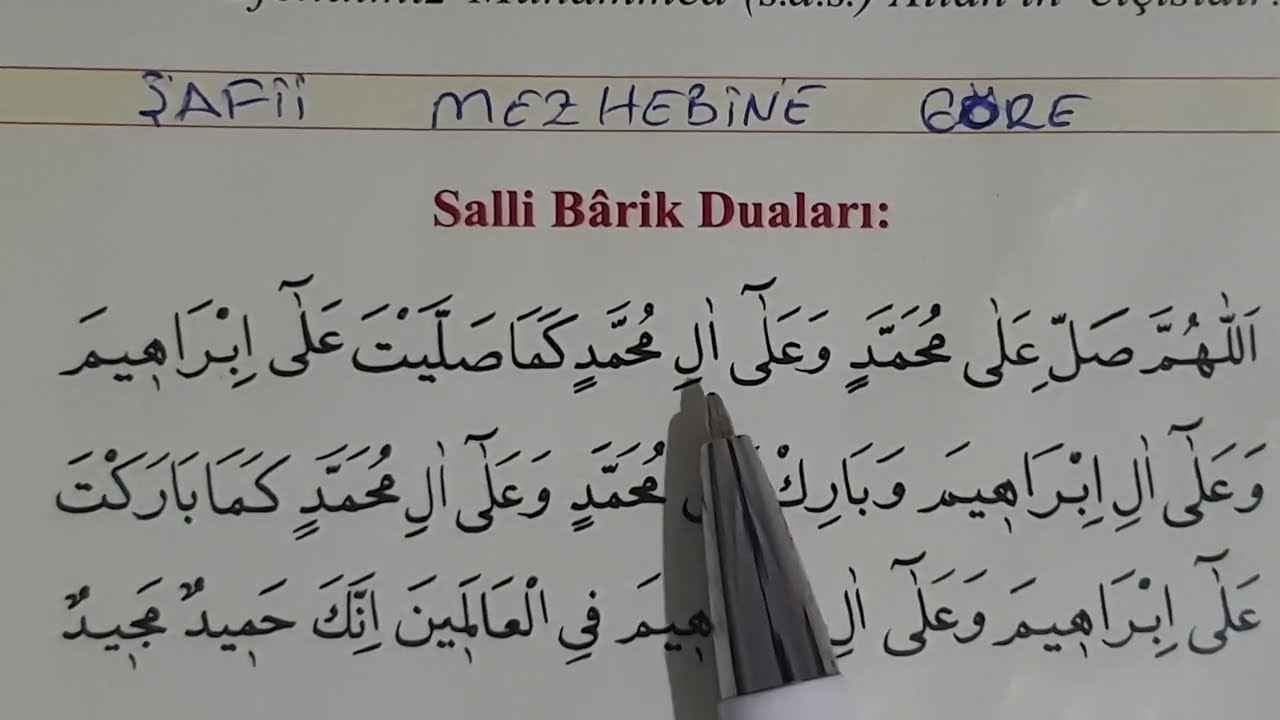 Muhammed (s.a.s.) Allah'ın Elçisidir.
ŞAFİİ MEZHEBİNE GÖRE
Salli Bârik Duaları:
اَللّٰهُمَّ صَلِّ عَلٰى مُحَمَّدٍ وَعَلٰٓى اٰلِ مُحَمَّدٍ كَمَا صَلَّيْتَ عَلٰٓى اِبْرَاهِيمَ
وَعَلٰٓى اٰلِ اِبْرَاهِيمَ وَبَارِكْ مُحَمَّدٍ وَعَلٰٓى اٰلِ مُحَمَّدٍ كَمَا بَارَكْتَ
عَلٰٓى اِبْرَاهِيمَ وَعَلٰٓى اٰلِ هِيمَ فِي الْعَالَمِينَ اِنَّكَ حَمِيدٌ مَجِيدٌ